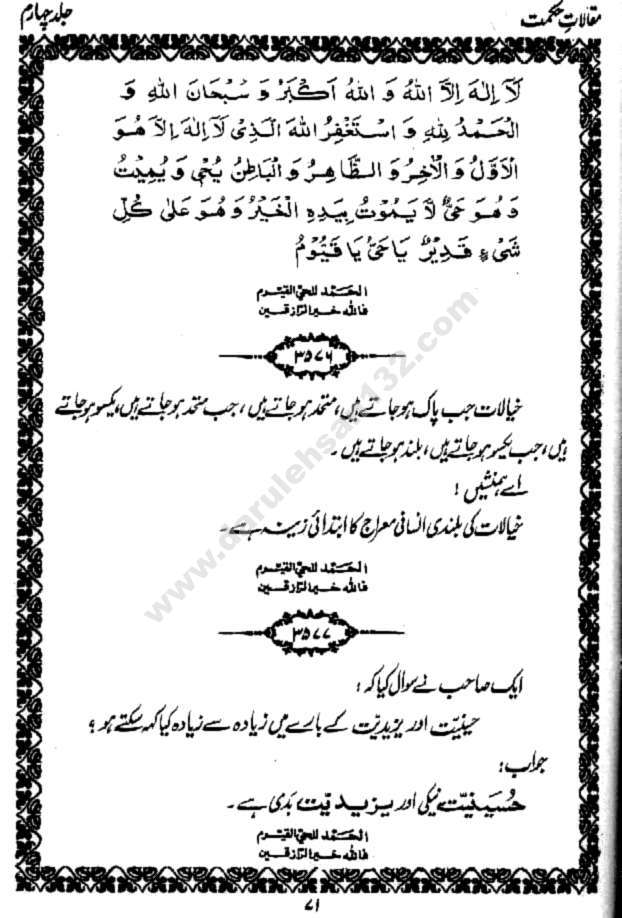 مقالاتِ حکمت
جلد چہارم
لَآ اِلٰهَ اِلاَّ اللهُ وَ اللهُ اَكْبَرُ وَ سُبْحَانَ اللهِ وَ
الْحَمْدُ لِلّٰهِ وَ اسْتَغْفِرُ اللهَ الَّذِىْ لَآ اِلٰهَ اِلاَّ هُوَ
الْاَوَّلُ وَ الْاٰخِرُ وَ الظَّاهِرُ وَ الْبَاطِنُ يُحْىٖ وَ يُمِيْتُ
وَ هُوَ حَىٌّ لَّا يَمُوْتُ بِيَدِهِ الْخَيْرُ وَ هُوَ عَلٰى كُلِّ
شَىْءٍ قَدِيْرٌ يَا حَىُّ يَا قَيُّوْمُ
الحَمْد للحيّ القيّوم
فاللہ خیر الرّازقین
۳۵۷۶
خیالات جب پاک ہو جاتے ہیں، متحد ہو جاتے ہیں، جب متحد ہو جاتے ہیں، یکسو ہو جاتے
ہیں، جب یکسو ہو جاتے ہیں، بلند ہو جاتے ہیں۔
اے ہمنشیں!
خیالات کی بلندی انسانی معراج کا ابتدائی زینہ ہے۔
الحَمْد للحيّ القيّوم
فاللہ خیر الرّازقین
۳۵۷۷
ایک صاحب نے سوال کیا کہ:
حسینیّت اور یزیدیّت کے بارے میں زیادہ سے زیادہ کیا کہہ سکتے ہو؟
جواب:
حُسَینیّت نیکی اور یزیدیّت بدی ہے۔
الحَمْد للحيّ القيّوم
فاللہ خیر الرّازقین
۷۱
www.darulehsan432.com